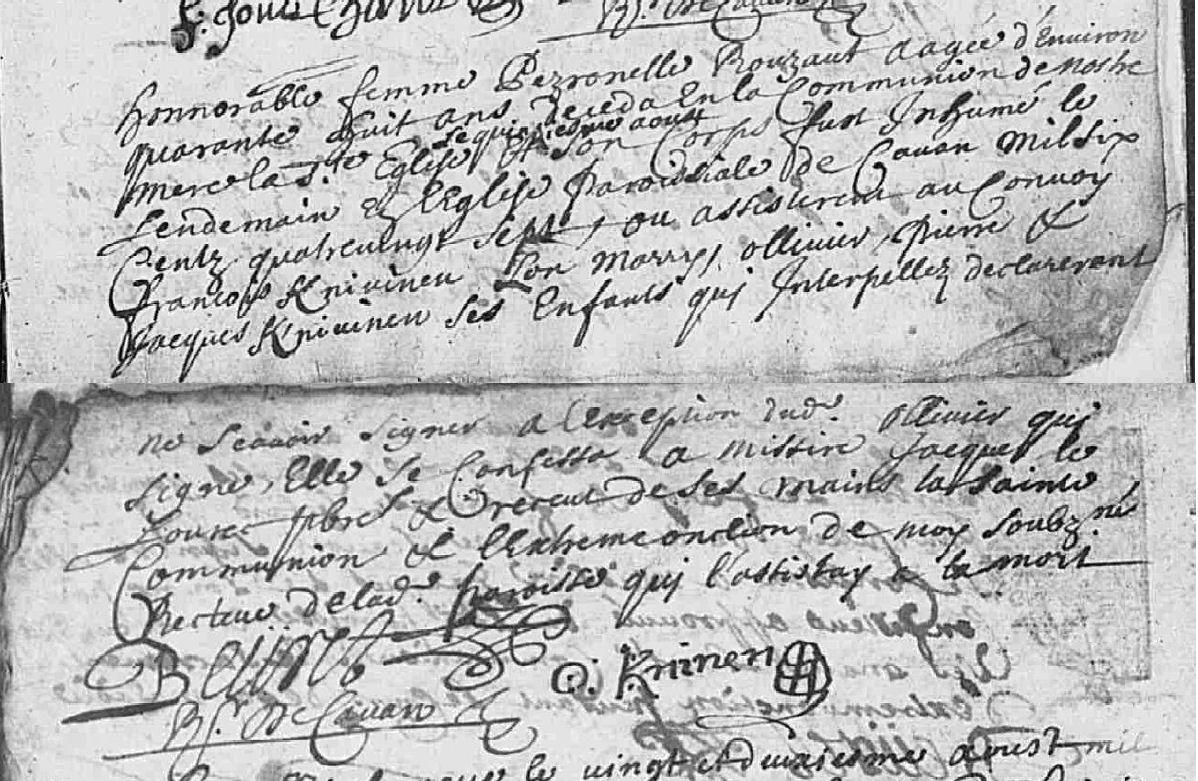 Honnorable femme Pezronelle Rouzaut aagée d'Environ
quarante huit ans deceda En la Communion de nostre
mere la Ste Eglise le quinziesme aoust Et son Corps fust Inhumé le
Lendemain En l'Eglise Paroissiale de Cavan mil six
Centz quatrevingt sept, ou assisterent au Convoy
François Knivinen son marry, ollivier, Pierre &
Jacques Knivinen ses Enfants qui Interpellez declarerent
ne scavoir signer a l'Exception dudt ollivier qui
signe, Elle se Confessa a missire Jacques le
pbre & receut de ses mains la sainte
Communion & l'Extremeonction de moy soubzné
Recteur de lad. Paroisse qui l'assistay a la mort
Rr. De Cavan
O. Kninen
le vingt et deuxiesme aoust mil